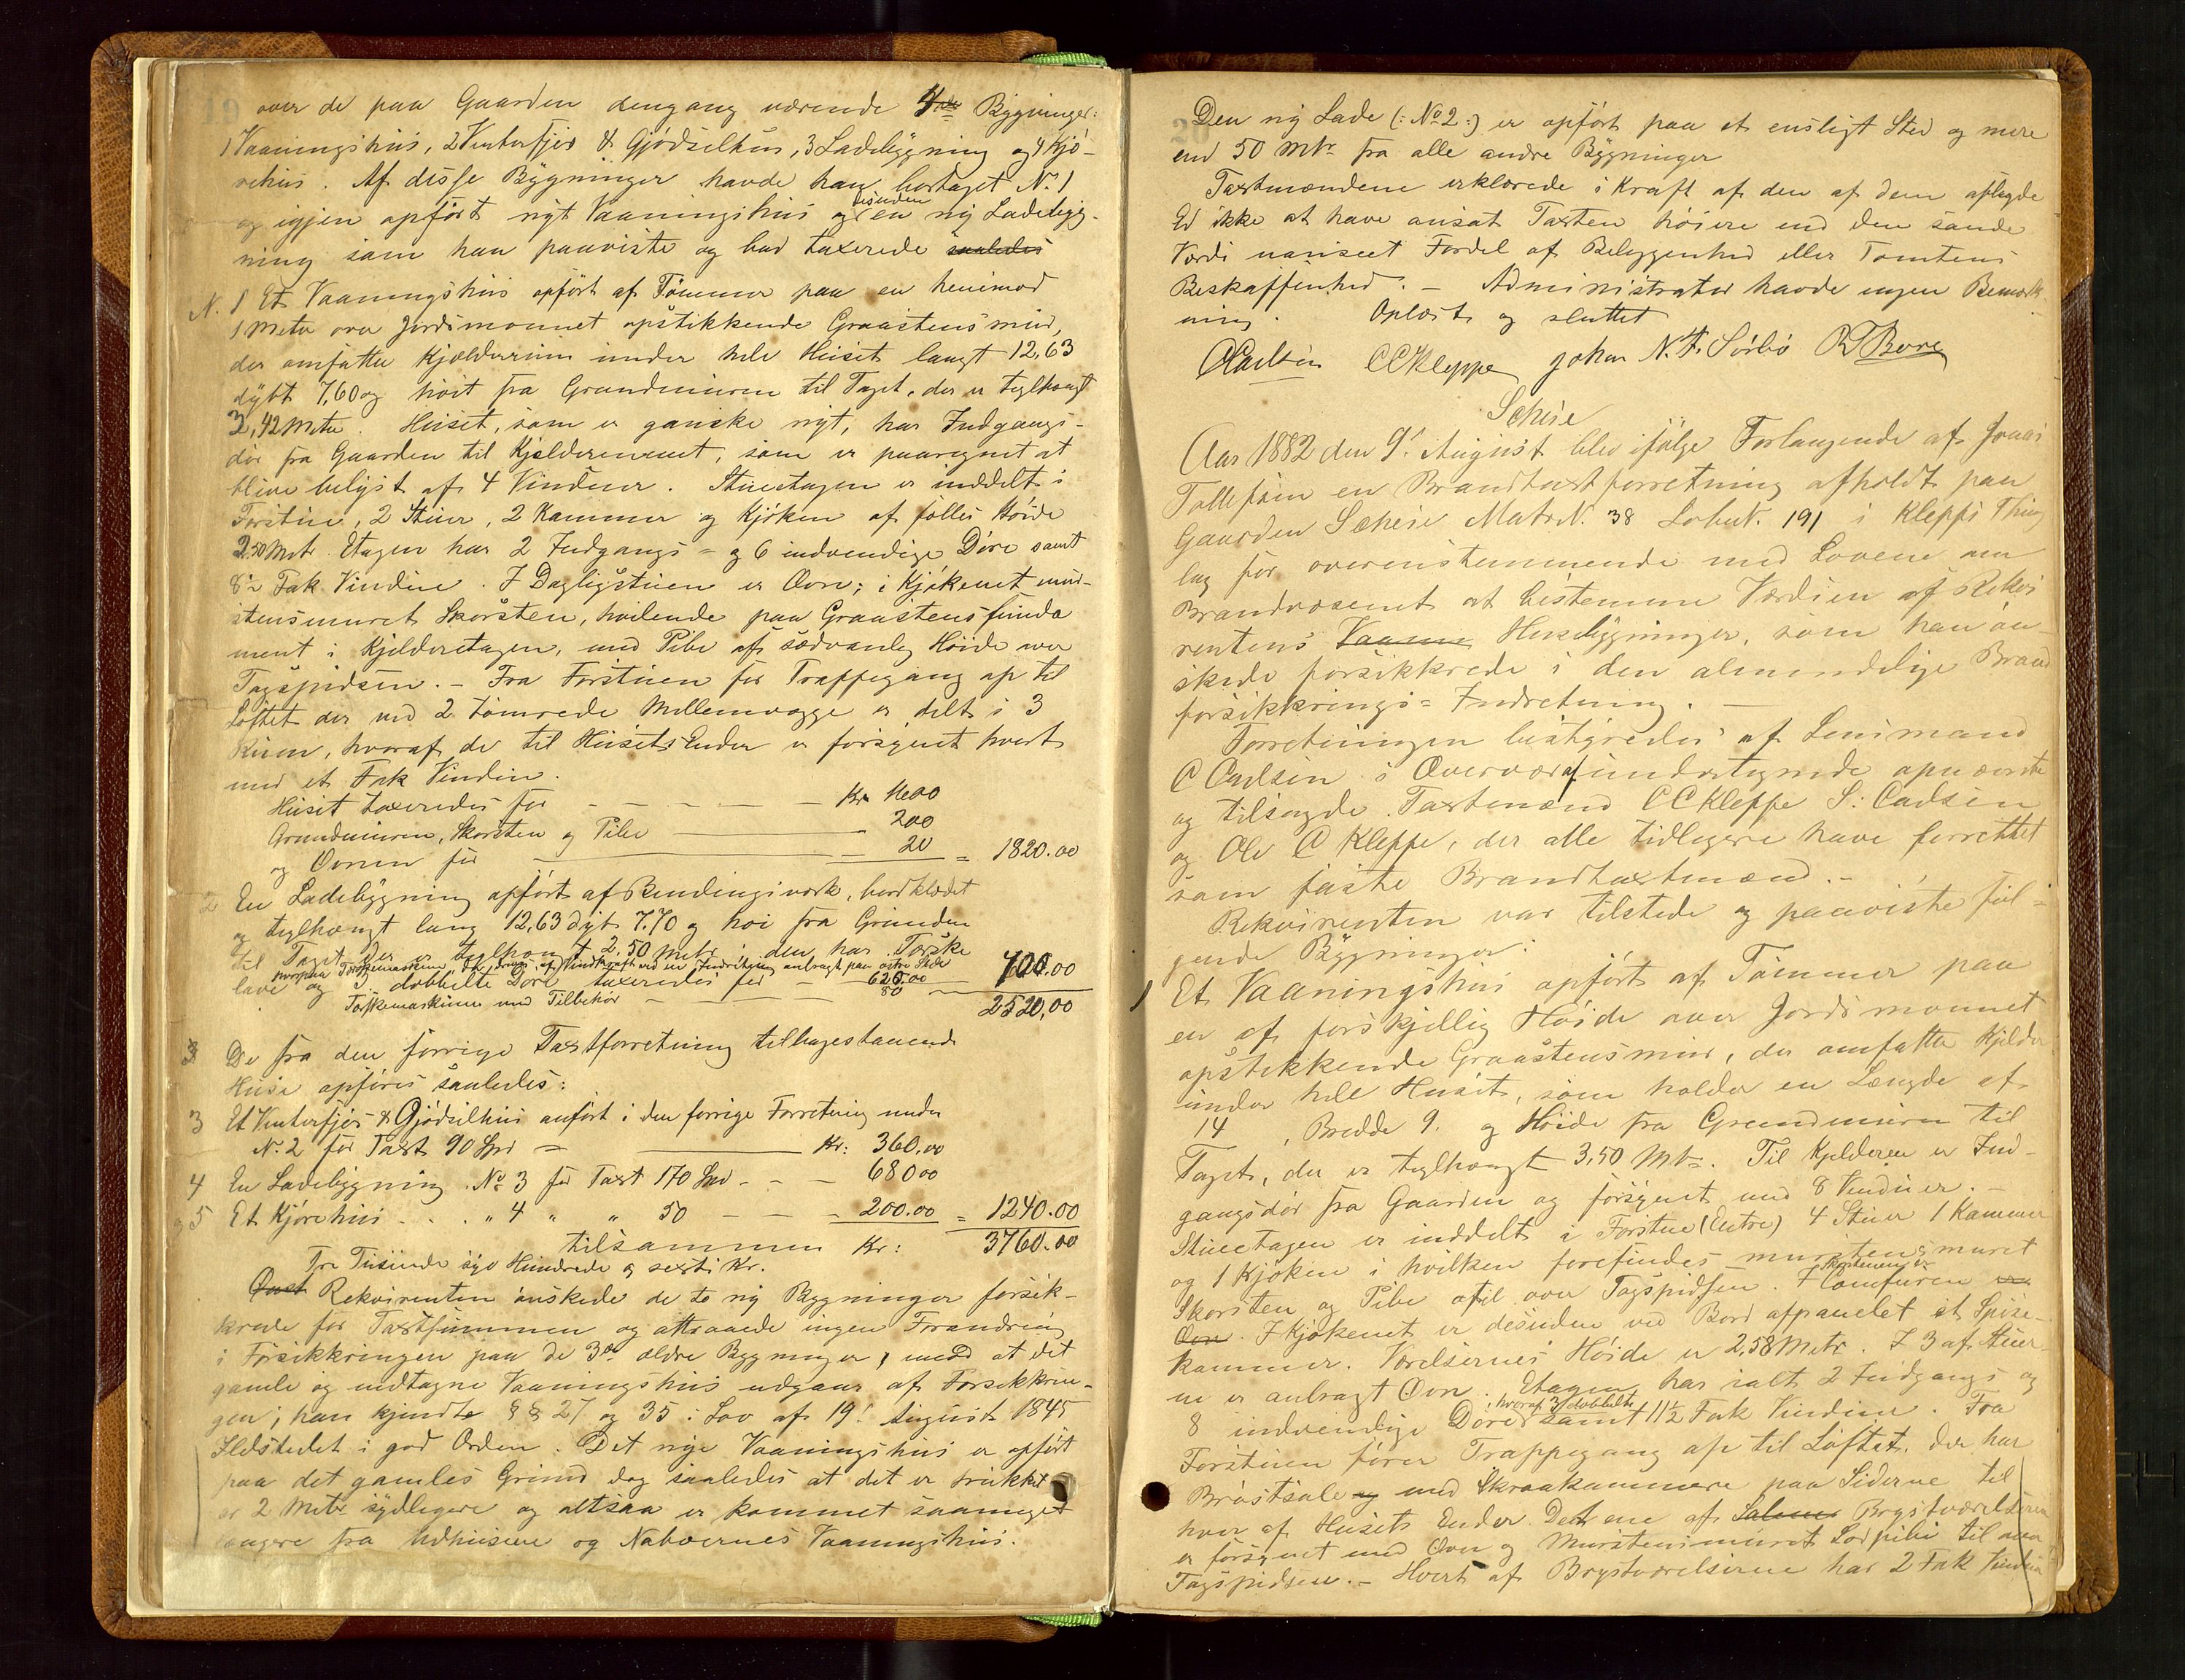 19
over de paa Gaarden dengang værende 4de Bygninger:
1 Vaaningshus, 2 Vinterfjøs & Gjødselhus, 3 Ladebygning og 4 Kjø-
rehus. Af disse Bygninger havde han borttaget No. 1
og igjen opført nyt Vaaningshus og desuden en ny Ladebyg-
ning som han paaviste og bad taxerede saaledes
N. 1 Et Vaaningshus opført af Tømmer paa en henimod
1 Meter over Jordsmonnet opstikkende Graastensmur,
der omfatter Kjælderrum under hele Huset langt 12,63
dybt 7,60 og høit fra Grundmuren til Taget, der er teglhængt
3,42 Meter. Huset, som er ganske nyt, har Indgangs-
dør fra Gaarden til Kjelderrummet, som er paaregnet at
blive belyst af 4 Vinduer. Stueetagen er inddelt i
Forstue, 2 Stuer, 2 Kammer og Kjøken af fælles Høide
2.50 Metr. Etagen har 2 Indgangs- og 6 indvendige Døre samt
8 1/2 Fak Vindue. I Dagligstuen er Ovn; i Kjøkenet mur-
stensmuret Skorsten, hvilende paa Graastensfunda
ment i Kjelderetagen, med Pibe af sædvanlig Høide over
Tagspidsen. – Fra Forstuen før Trappegang op til
Loftet der ved 2 tømrede Mellemvægge er delt i 3
Rum, hvoraf de til Husets Ender er forsynet hvert
med et Fak Vindue.
Huset taxeredes for – – – – Kr. 1600
Grundmuren, Skorsten og Pibe – 200
og Ovnen for – 20 = 1820.00
2 En Ladebygning opført af Bindingsværk, bordklædet
og teglhængt lang 12,63 dyb 7.70 og høi fra Grunden
til Taget der er teglhængt 2,50 Metr. den har Tærske
hvorpaa Tærskemaskine der drives af Vindkraft ved en Indretning anbragt paa østre Side
lave og 3 dobbelte Døre taxeredes for – 620.00 700.00
Tærskemaskinen med Tilbehør – 80 – 2520,00
3 De fra den forrige Taxtforretning tilbagestaaende
Huse opføres saaledes:
3 Et Vinterfjøs & Gjødselhus anført i den forrige Forretning under
N. 2 for Taxt 90 Spd = Kr: 360,00
4 En Ladebygning No. 3 for Taxt 170 Spd – – – 680 00
og 5 Et Kjørehus . . . " 4 " " 50 – – – 200.00 = 1240.00
tilsammen Kr: 3760.00
Tre Tusinde syv Hundrede og sexti Kr.
Rekvirenten ønskede de to ny Bygninger forsik-
krede for Taxtsummen og attraaede ingen Forandring
i Forsikkringen paa de 3de ældre Bygninger, med at det
gamle og nedtagne Vaaningshus udgaar af Forsikkrin-
gen; han kjendte §§ 27 og 35 i Lov af 19. August 1845
Ildstedet i god Orden. Det nye Vaaningshus er opført
paa det gamles Grund dog saaledes at det er rukket
2 Metr sydligere og altsaa er kommet saameget
længere fra Udhusene og Naboernes Vaaningshus.
Den ny Lade (: No. 2 :) er opført paa et ensligt Sted og mere
end 50 Mtr. fra alle andre Bygninger
Taxtmændene erklærede i Kraft af den af dem aflagde
Ed ikke at have ansat Taxten høiere end den sande
Værdi uanseet Fordel af Beliggenhed eller Tomtens
Beskaffenhed. – Administrator havde ingen Bemærk-
ning. Oplæst og sluttet
C Carlsen CCKleppe Johan N. F. Sørbø R T Bore
Scheie
Aar 1882 den 9. August blev ifølge Forlangende af Jonas
Tollefsen en Brandtaxtforretning afholdt paa
Gaarden Scheie Matr.N. 38 Løben. 191 i Klepps Thing
lag for overensstemmende med Lovene om
Brandvæsenet at bestemme Værdien af Rekvi
rentens Vaanin Husebygninger, som han øn-
skede forsikkrede i den almindelige Brand
forsikkrings-Indretning. –
Forretningen bestyredes af Lensmand
C Carlsen i Overvær af undertegnede opnævnte
og tilsagde Taxtmænd CCKleppe S: Carlsen
og Ole C Kleppe, der alle tidligere have forrettet
som faste Brandtaxtmænd. –
Rekvirenten var tilstede og paaviste føl-
gende Bygninger:
1 Et Vaaningshus opført af Tømmer paa
en af forskjellig Høide over Jordsmonnet
opstikkende Graastensmur, der omfatter Kjelder
under hele Huset, som holder en Længde af
14 , Bredde 9. og Høide fra Grundmuren til
Taget, der er teglhængt 3,50 Mtr. Til Kjelderen er Ind-
gangsdør fra Gaarden og forsynet med 8 Vinduer. –
Stueetagen er inddelt i Forstue (Entre) 4 Stuer 1 Kammer
og 1 Kjøken i hvilken forefindes murstensmuret
Skorsten og Pibe optil over Tagspidsen. I Skorstenen er Comfuren
Ovn. I Kjøkenet er desuden ved Bord afpanelet et Spise-
kammer. Værelsernes Høide er 2,58 Metr. I 3 af Stuer-
ne er anbragt Ovn. Etagen har ialt 2 Indgangs og
8 indvendige Døre hvoraf 3 dobbelte samt 11 1/2 Fak Vinduer. Fra
Forstuen fører Trappegang op til Loftet. der har
Brøstsale og med Skraakammere paa Siderne til
hver af Husets Ender. Det ene af Salene Brystværelserne
er forsynet med Ovn og Murstensmuret Lodpibe til over
Tagspidsen. – Hvert af Brystværelserne har 2 Fak Vindue